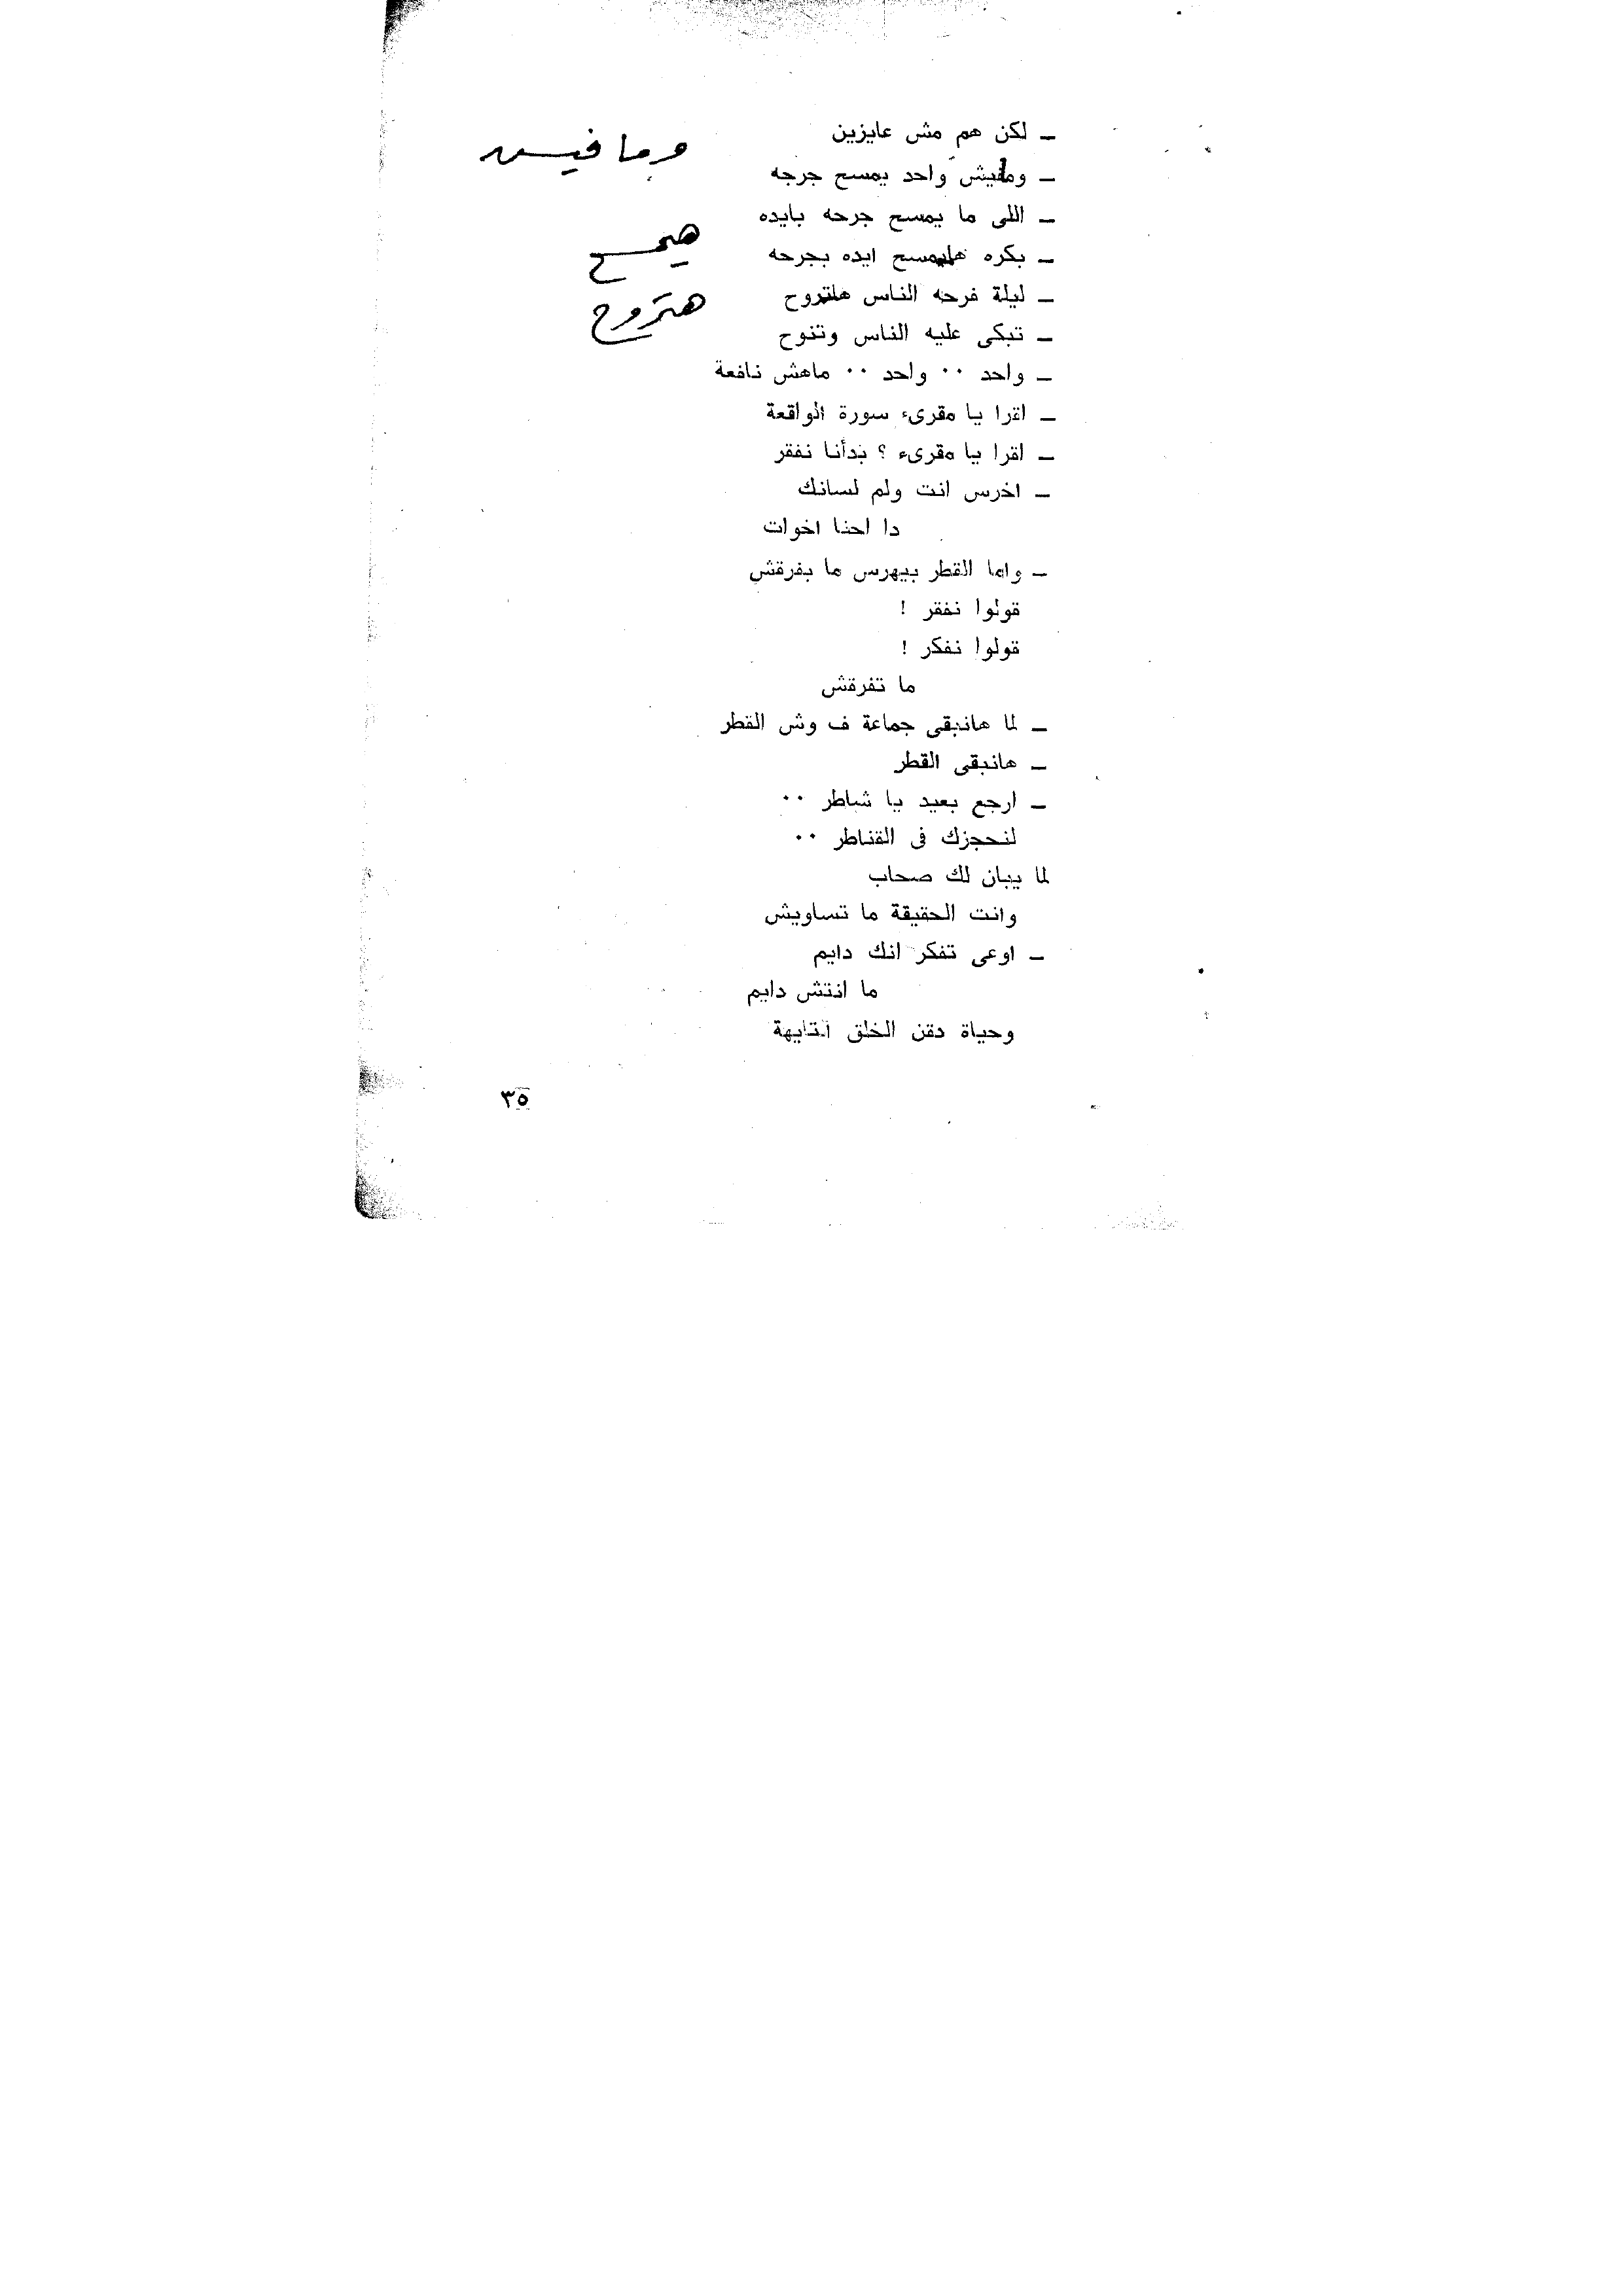 ـ لكن هم مش عايزين
ومافيش
ـ ومافيش واحد يمسح جرحه
ـ اللى ما يمسح جرحه بايده
هيمسح
ـ بكره هايمسح ايده بجرحه
ـ ليلة فرحه الناس هاتروح
هتروح
ـ تبكى عليه الناس وتنوح
ـ واحد ٠٠ واحد ٠٠ ماهش نافعة
ـ اقرا يا مقرىء سورة الواقعة
ـ اقرا يا مقرىء ؟ بدأنا نفقر
ـ اخرس انت ولم لسانك
دا احنا اخوات
ـ واما القطر بيهرس ما بفرقش
قولوا نفقر !
قولوا نفكر !
ما تفرقش
ـ لما هانبقى جماعة ف وش القطر
ـ هانبقى القطر
ـ ارجع بعيد يا شاطر ٠٠
لنحجزك فى القناطر ٠٠
لما يبان لك صحاب
وانت الحقيقة ما تساويش
ـ اوعى تفكر انك دايم
ما انتش دايم
وحياة دقن الخلق التايهة
٣٥